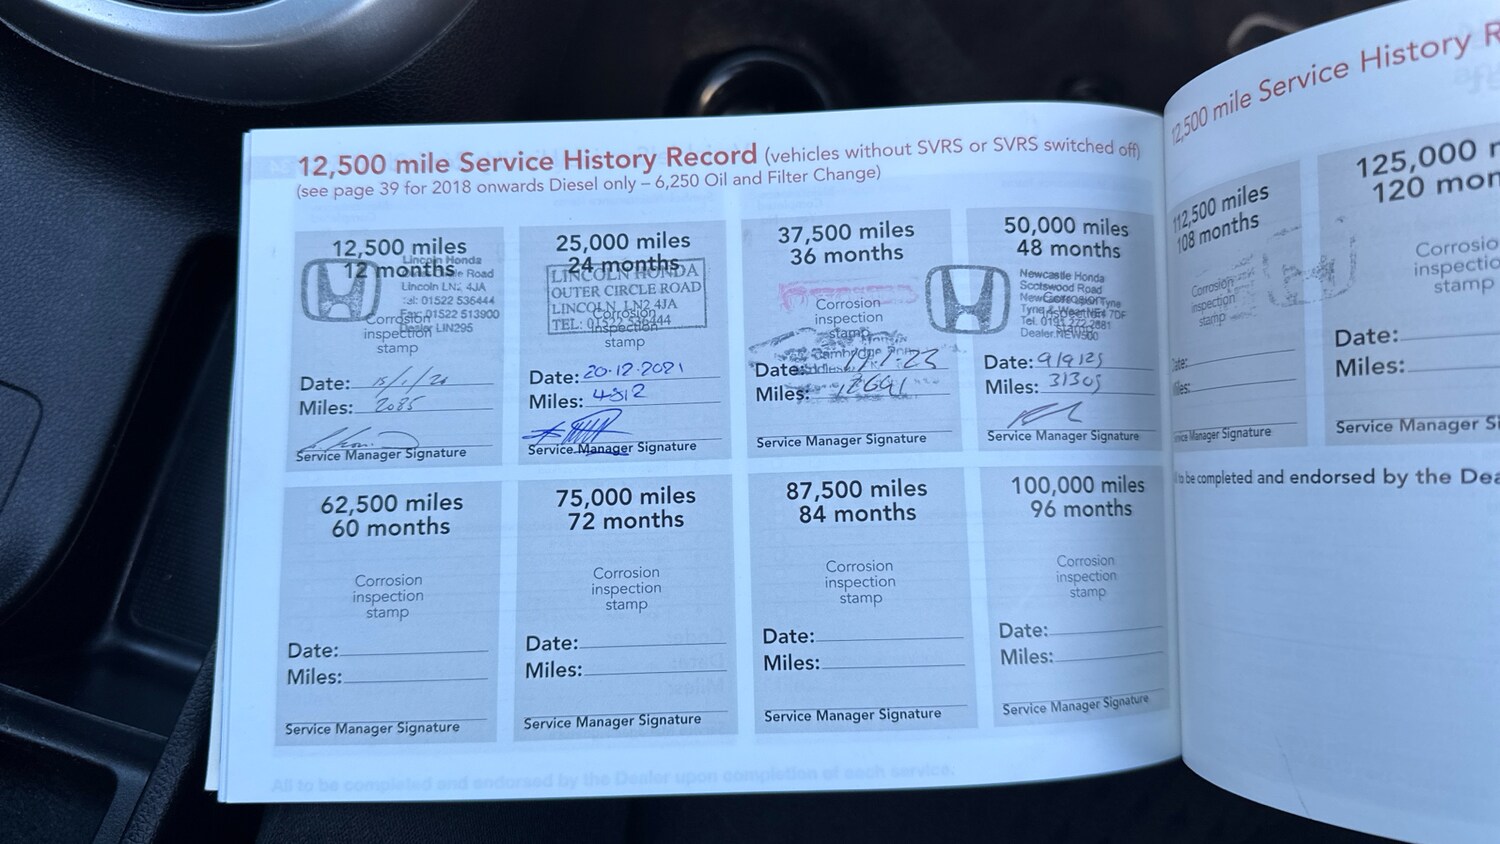 12,500 mile Service History Record (vehicles without SVRS or SVRS switched off)
(see page 39 for 2018 onwards Diesel only – 6,250 Oil and Filter Change)
12,500 miles
12 months
Lincoln Honda
Road
Lincoln LN2 4JA
Tel: 01522 535444
Fax: 01522 513900
Dealer LIN295
Corrosion
inspection
stamp
Date:
Miles: 2085
Service Manager Signature
25,000 miles
24 months
LINCOLN HONDA
OUTER CIRCLE ROAD
LINCOLN LN2 4JA
TEL: 01522 535444
Corrosion
inspection
stamp
Date: 20-12-2021
Miles: 4312
Service Manager Signature
37,500 miles
36 months
Corrosion
inspection
stamp
Date:
Miles:
Service Manager Signature
50,000 miles
48 months
Newcastle Honda
Scotswood Road
Newcastle upon Tyne
Tyne & Wear NE4 7DF
Tel. 0191
Dealer.NEW500
Date: 9/9/25
Miles: 31305
Service Manager Signature
62,500 miles
60 months
Corrosion
inspection
stamp
Date:
Miles:
Service Manager Signature
75,000 miles
72 months
Corrosion
inspection
stamp
Date:
Miles:
Service Manager Signature
87,500 miles
84 months
Corrosion
inspection
stamp
Date:
Miles:
Service Manager Signature
100,000 miles
96 months
Corrosion
inspection
stamp
Date:
Miles:
Service Manager Signature
All to be completed and endorsed by the Dealer upon completion of each service.
12,500 mile Service History R
112,500 miles
108 months
Corrosion
inspection
stamp
Date:
Miles:
Manager Signature
125,000
120 mon
Corrosio
inspectio
stamp
Date:
Miles:
Service Manager Si
to be completed and endorsed by the Dea